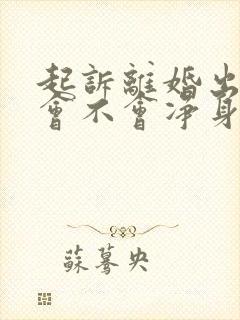 起訴離婚出
會不會淨身
蘇驀央